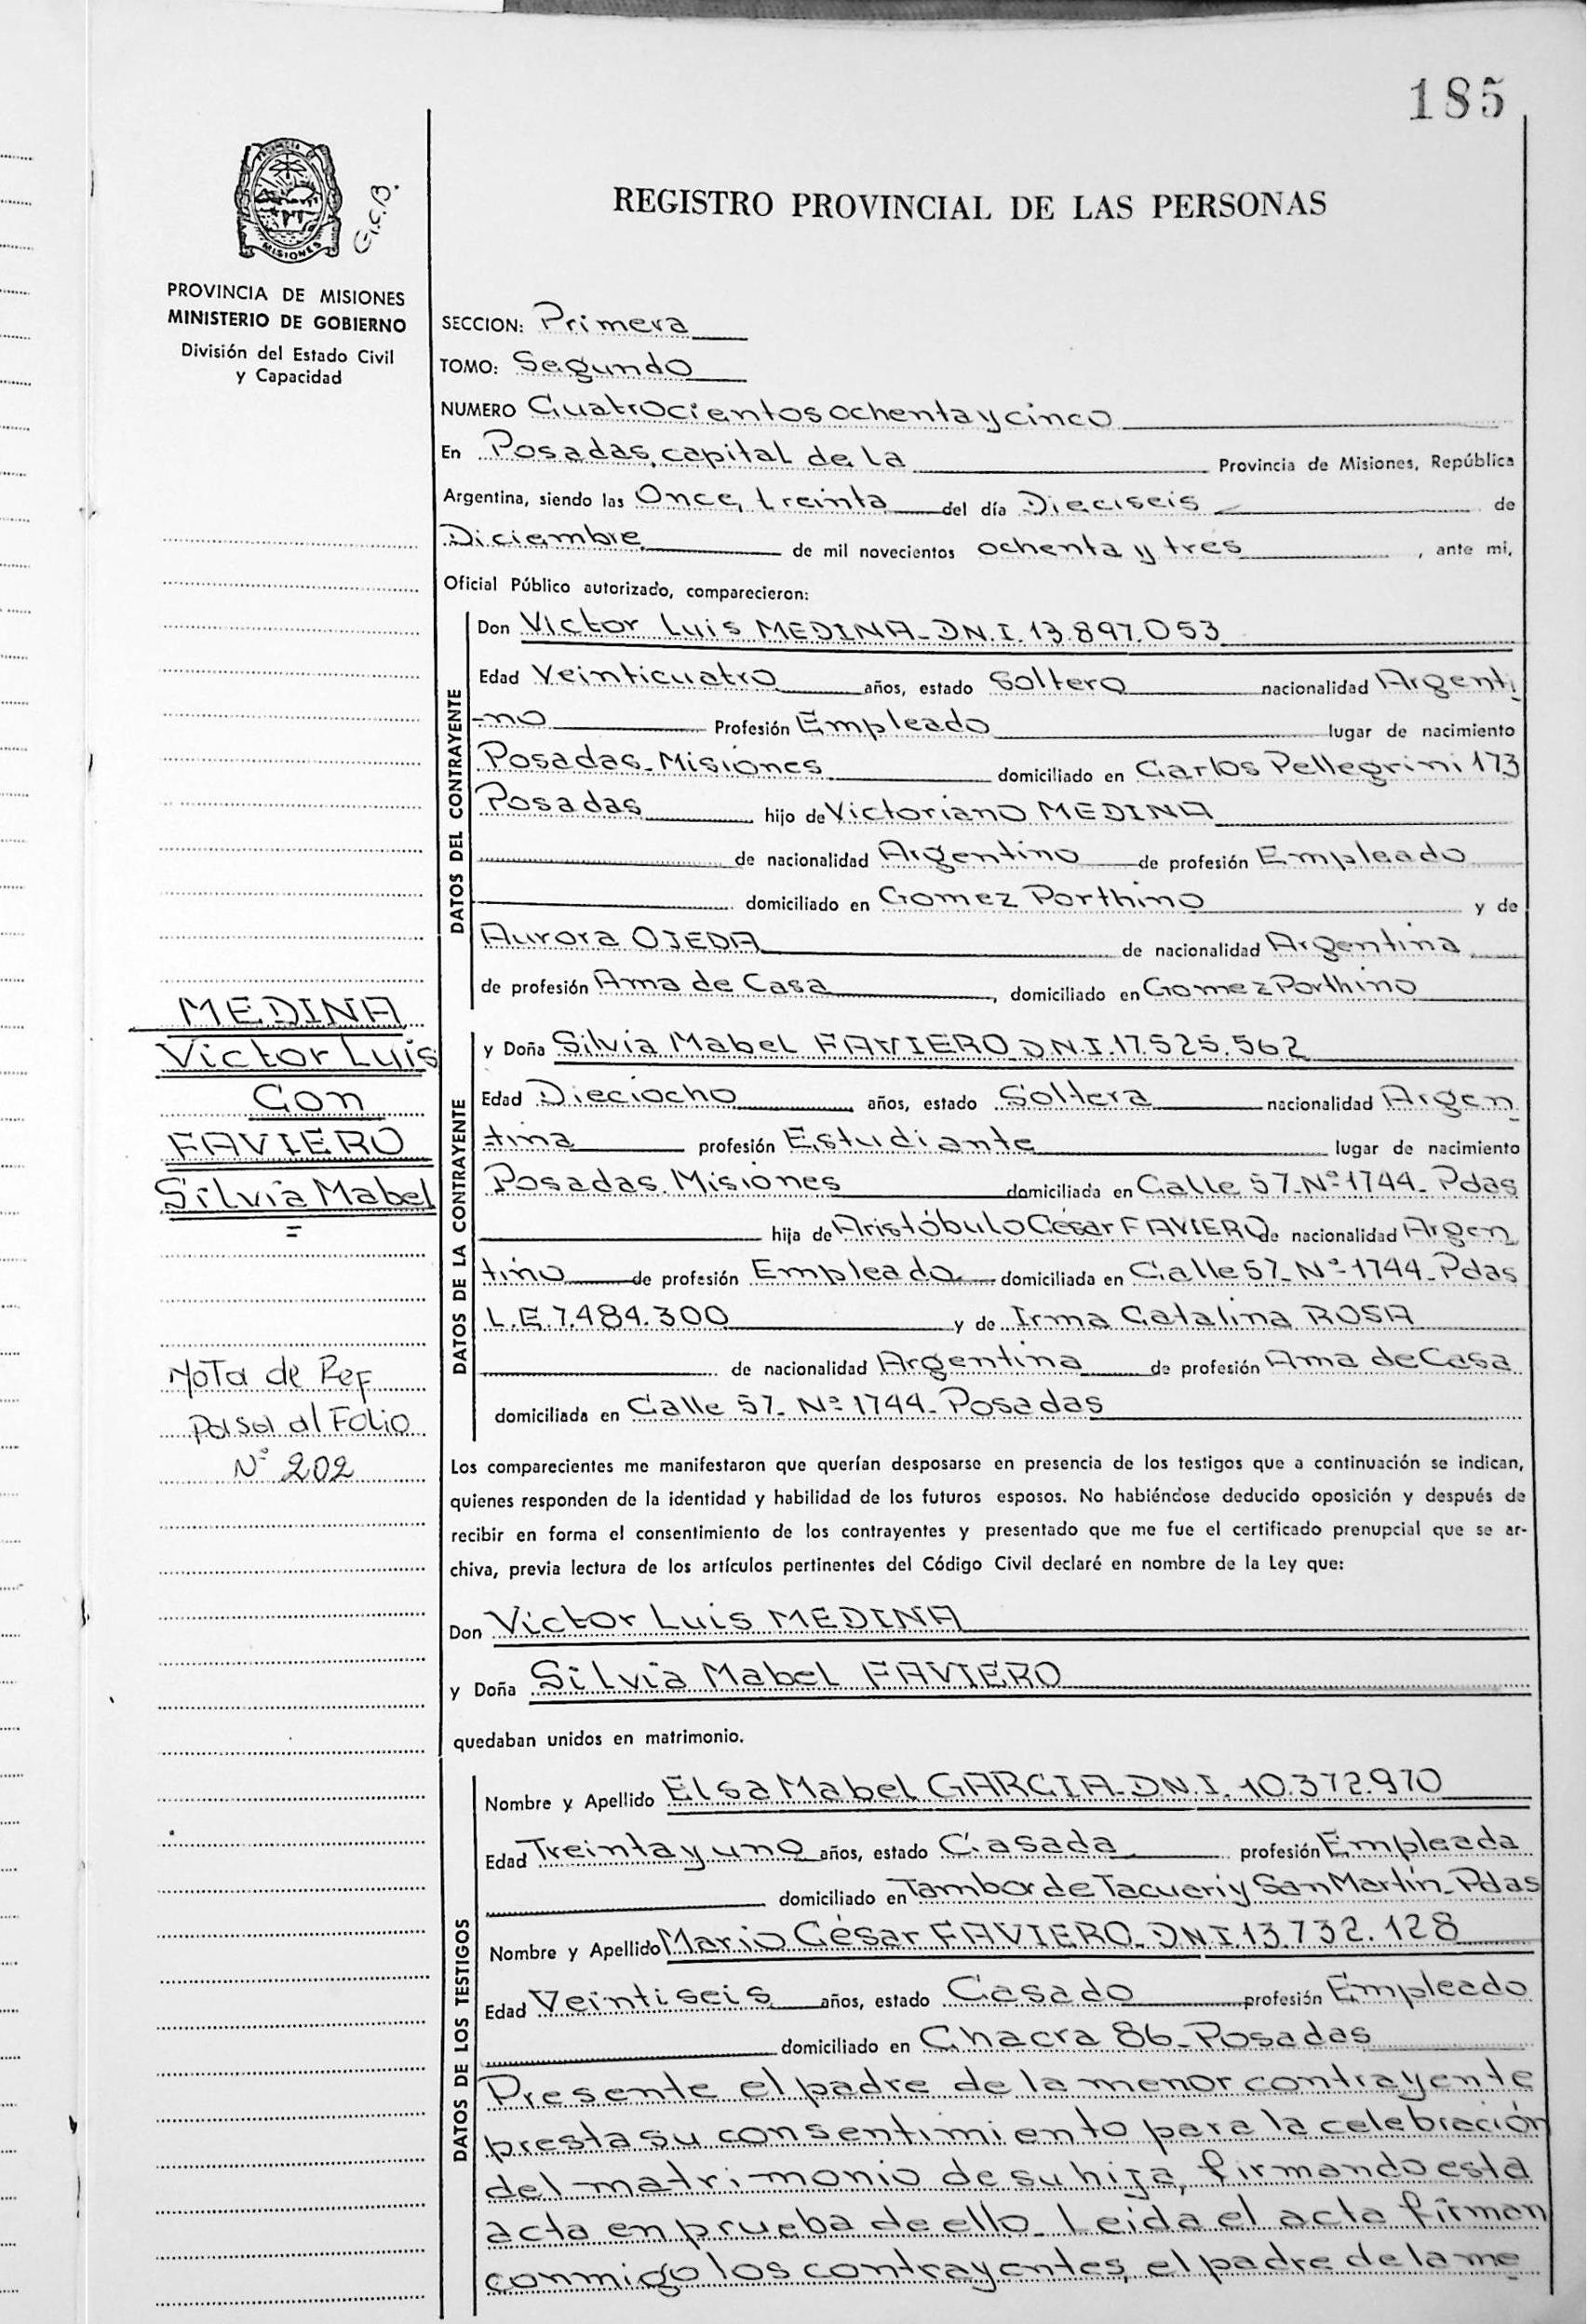 185
PROVINCIA DE
MISIONES
G.S.B.
PROVINCIA DE MISIONES
MINISTERIO DE GOBIERNO
División del Estado Civil
y Capacidad
MEDINA
Victor Luis
Con
FAVIERO
Silvia Mabel
=
Nota de Ref
Pasa al Folio
Nº 202
REGISTRO PROVINCIAL DE LAS PERSONAS
SECCION: Primera
TOMO: Segundo
NUMERO Cuatrocientos ochenta y cinco
En Posadas, capital de la Provincia de Misiones, República
Argentina, siendo las Once, treinta del día Dieciseis de
Diciembre de mil novecientos ochenta y tres , ante mi,
Oficial Público autorizado, comparecieron:
DATOS DEL CONTRAYENTE
Don Victor Luis MEDINA-D.N.I. 13.897.053
Edad Veinticuatro años, estado Soltero nacionalidad Argenti
-no Profesión Empleado lugar de nacimiento
Posadas-Misiones domiciliado en Carlos Pellegrini 173
Posadas hijo de Victoriano MEDINA
de nacionalidad Argentino de profesión Empleado
domiciliado en Gomez Porthino y de
Aurora OJEDA de nacionalidad Argentina
de profesión Ama de Casa, domiciliado en Gomez Porthino
DATOS DE LA CONTRAYENTE
y Doña Silvia Mabel FAVIERO D.N.I. 17.525.562
Edad Dieciocho años, estado Soltera nacionalidad Argen
tina profesión Estudiante lugar de nacimiento
Posadas. Misiones domiciliada en Calle 57-Nº 1744- Pdas
hija de Aristóbulo César FAVIERO de nacionalidad Argen
tino de profesión Empleado domiciliada en Calle 57-Nº-1744-Pdas
L.E.7.484.300 y de Irma Catalina ROSA
de nacionalidad Argentina de profesión Ama de Casa
domiciliada en Calle 57- Nº 1744- Posadas
Los comparecientes me manifestaron que querían desposarse en presencia de los testigos que a continuación se indican,
quienes responden de la identidad y habilidad de los futuros esposos. No habiéndose deducido oposición y después de
recibir en forma el consentimiento de los contrayentes y presentado que me fue el certificado prenupcial que se ar-
chiva, previa lectura de los artículos pertinentes del Código Civil declaré en nombre de la Ley que:
Don Victor Luis MEDINA
y Doña Silvia Mabel FAVIERO
quedaban unidos en matrimonio.
DATOS DE LOS TESTIGOS
Nombre y Apellido Elsa Mabel GARCIA-D.N.I. 10.372.970
Edad Treinta y uno años, estado Casada profesión Empleada
domiciliado en Tambor de Tacuari y San Martín-Pdas
Nombre y Apellido Mario César FAVIERO-DNI.13.732.128
Edad Veintiseis años, estado Casado profesión Empleado
domiciliado en Chacra 86-Posadas
Presente el padre de la menor contrayente
presta su consentimiento para la celebración
del matrimonio de su hija, firmando esta
acta en prueba de ello- Leida el acta firman
conmigo los contrayentes, el padre de la me